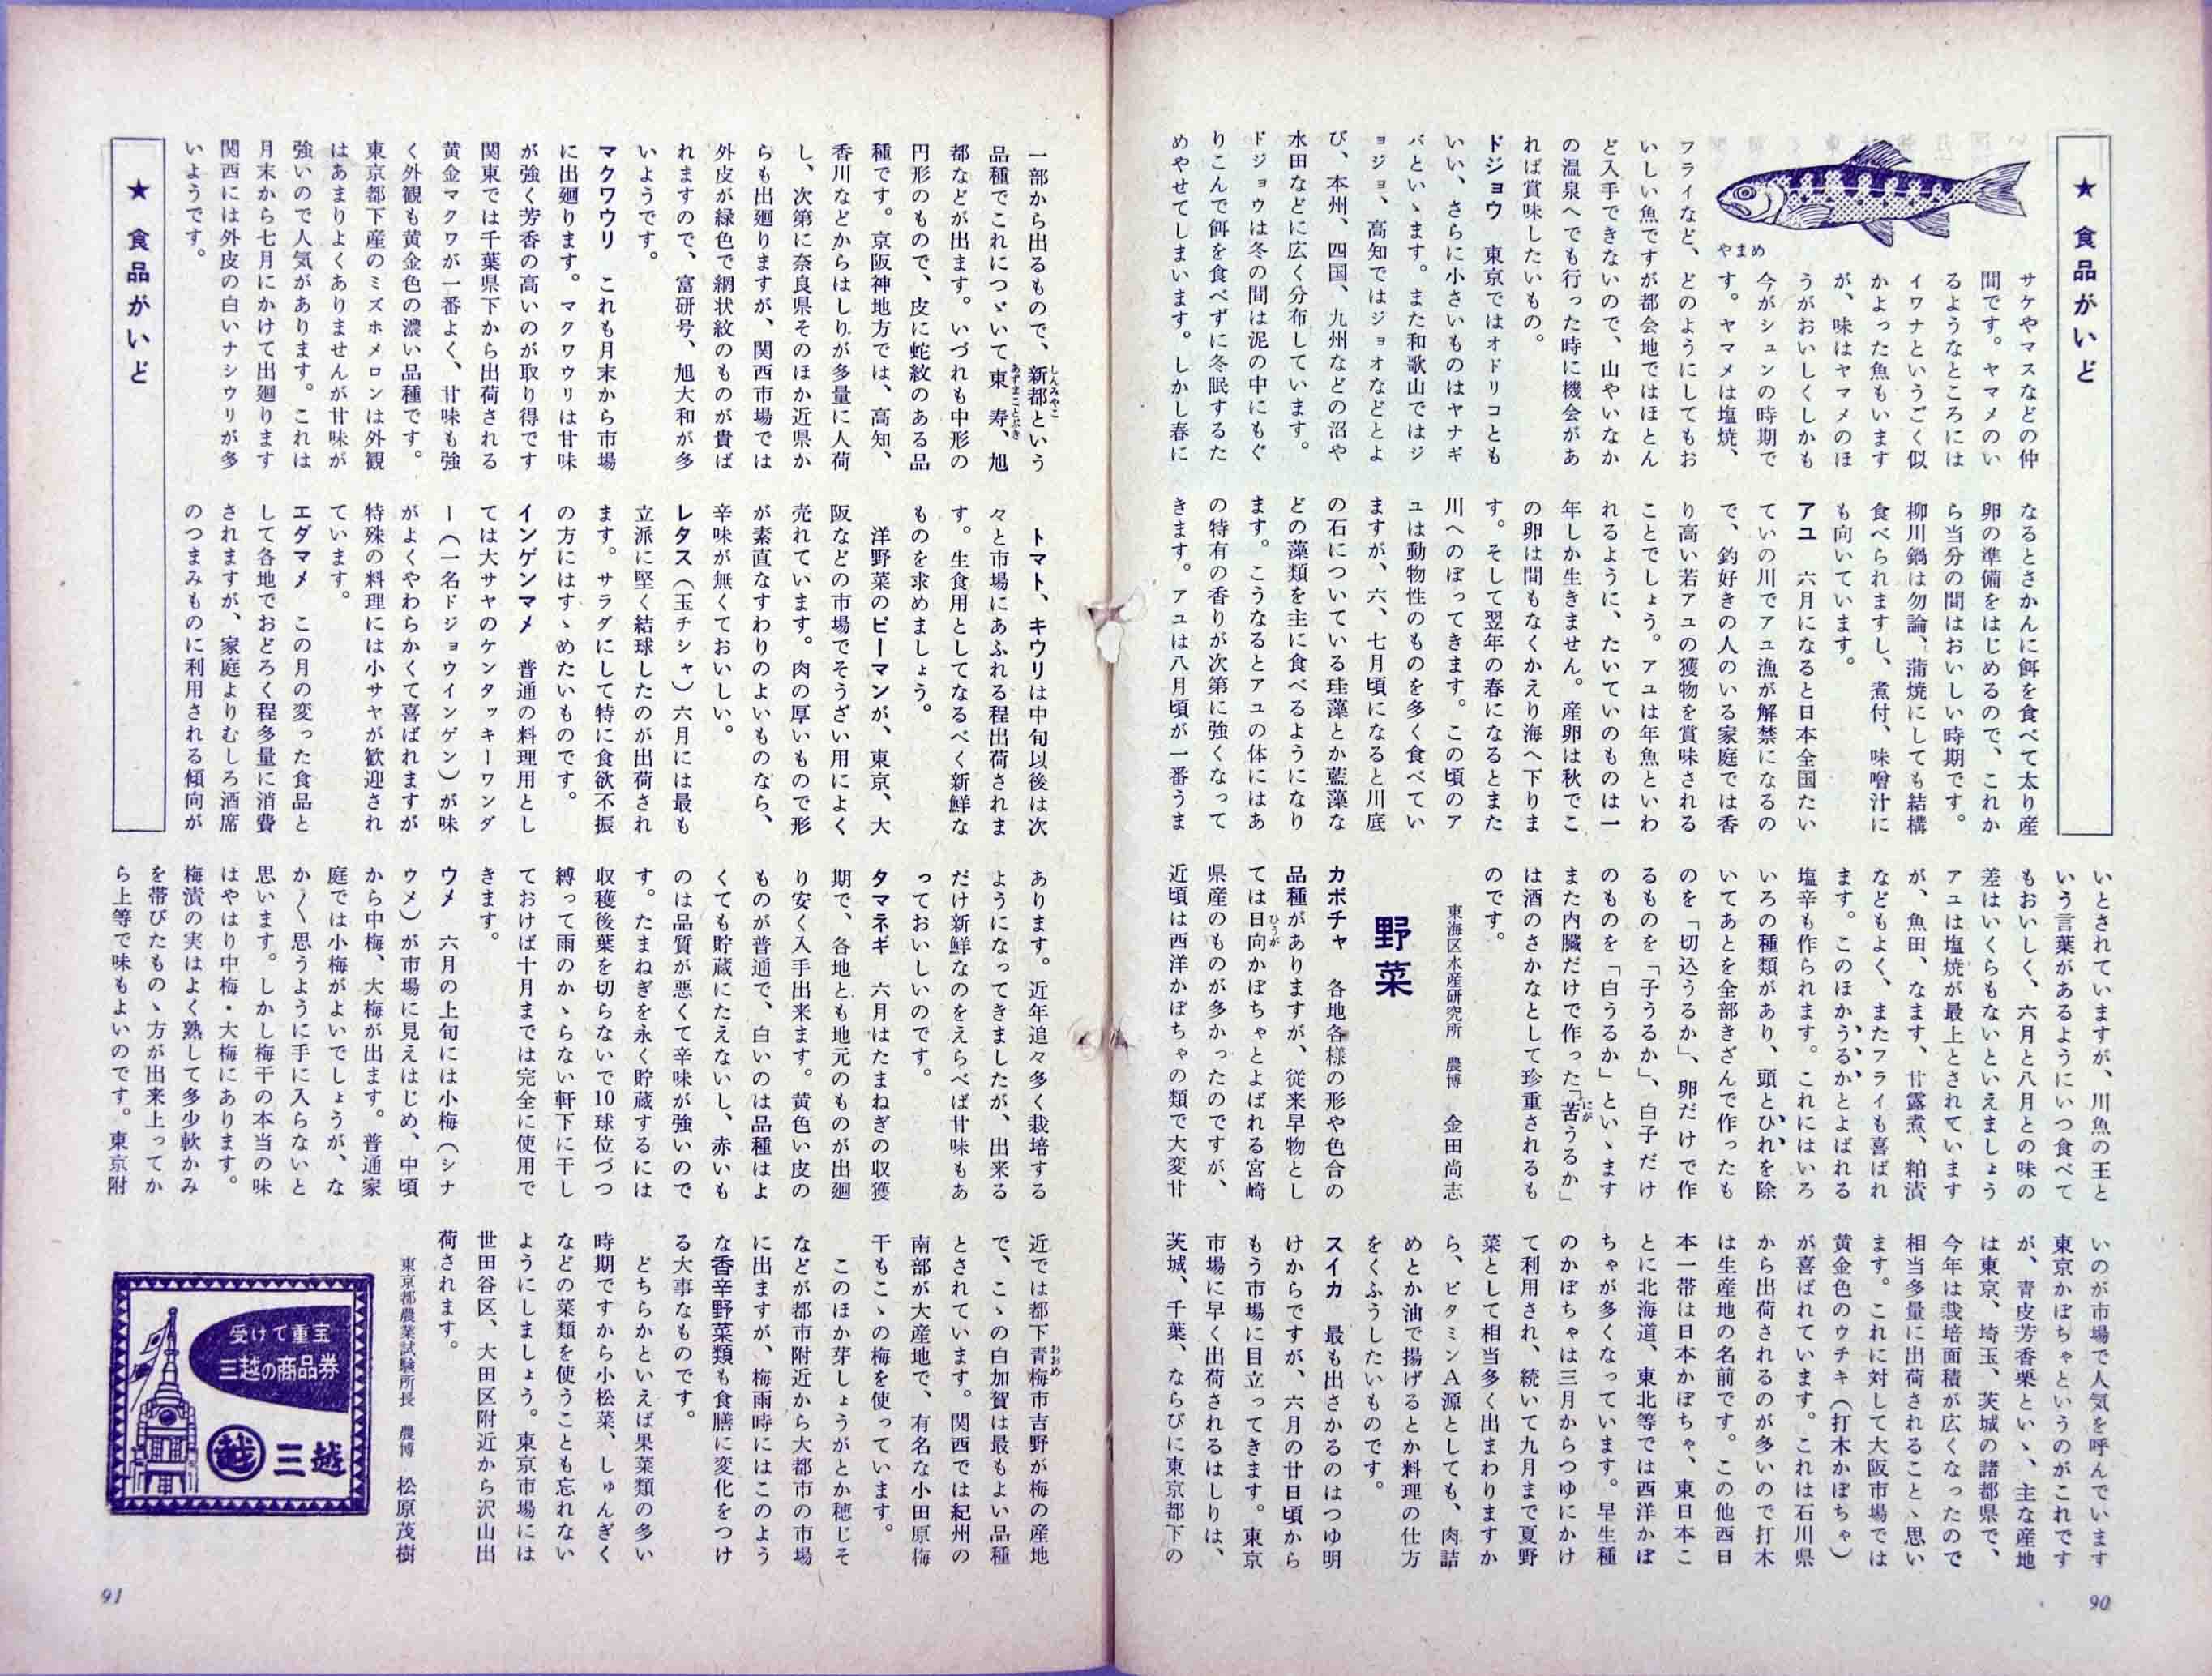 ★ 食品がいど
やまめ
サケやマスなどの仲
間です。ヤマメのい
るようなところには
イワナというごく似
かよった魚もいます
が、味はヤマメのほ
うがおいしくしかも
今がシュンの時期で
す。ヤマメは塩焼、
フライなど、どのようにしてもお
いしい魚ですが都会地ではほとん
ど入手できないので、山やいなか
の温泉へでも行った時に機会があ
れば賞味したいもの。
ドジョウ　東京ではオドリコとも
いい、さらに小さいものはヤナギ
バといゝます。また和歌山ではジ
ョジョ、高知ではジョオなどとよ
び、本州、四国、九州などの沼や
水田などに広く分布しています。
ドジョウは冬の間は泥の中にもぐ
りこんで餌を食べずに冬眠するた
めやせてしまいます。しかし春に
なるとさかんに餌を食べて太り産
卵の準備をはじめるので、これか
ら当分の間はおいしい時期です。
柳川鍋は勿論、蒲焼にしても結構
食べられますし、煮付、味噌汁に
も向いています。
アユ　六月になると日本全国たい
ていの川でアユ漁が解禁になるの
で、釣好きの人のいる家庭では香
り高い若アユの獲物を賞味される
ことでしょう。アユは年魚といわ
れるように、たいていのものは一
年しか生きません。産卵は秋でこ
の卵は間もなくかえり海へ下りま
す。そして翌年の春になるとまた
川へのぼってきます。この頃のア
ユは動物性のものを多く食べてい
ますが、六、七月頃になると川底
の石についている珪藻とか藍藻な
どの藻類を主に食べるようになり
ます。こうなるとアユの体にはあ
の特有の香りが次第に強くなって
きます。アユは八月頃が一番うま
いとされていますが、川魚の王と
いう言葉があるようにいつ食べて
もおいしく、六月と八月との味の
差はいくらもないといえましょう
アユは塩焼が最上とされています
が、魚田、なます、甘露煮、粕漬
などもよく、またフライも喜ばれ
ます。このほかうるかとよばれる
塩辛も作られます。これにはいろ
いろの種類があり、頭とひれを除
いてあとを全部きざんで作ったも
のを「切込うるか」、卵だけで作
るものを「子うるか」、白子だけ
のものを「白うるか」といゝます
また内臓だけで作った「苦うるか」
は酒のさかなとして珍重されるも
のです。
東海区水産研究所　農博　金田尚志
野菜
カボチャ　各地各様の形や色合の
品種がありますが、従来早物とし
ては日向かぼちゃとよばれる宮崎
県産のものが多かったのですが、
近頃は西洋かぼちゃの類で大変甘
いのが市場で人気を呼んでいます
東京かぼちゃというのがこれです
が、青皮芳香栗といゝ、主な産地
は東京、埼玉、茨城の諸都県で、
今年は栽培面積が広くなったので
相当多量に出荷されることゝ思い
ます。これに対して大阪市場では
黄金色のウチキ（打木かぼちゃ）
が喜ばれています。これは石川県
から出荷されるのが多いので打木
は生産地の名前です。この他西日
本一帯は日本かぼちゃ、東日本こ
とに北海道、東北等では西洋かぼ
ちゃが多くなっています。早生種
のかぼちゃは三月からつゆにかけ
て利用され、続いて九月まで夏野
菜として相当多く出まわりますか
ら、ビタミンA源としても、肉詰
めとか油で揚げるとか料理の仕方
をくふうしたいものです。
スイカ　最も出さかるのはつゆ明
けからですが、六月の廿日頃から
もう市場に目立ってきます。東京
市場に早く出荷されるはしりは、
茨城、千葉、ならびに東京都下の
90
一部から出るもので、新都という
品種でこれにつゞいて東寿、旭
都などが出ます。いづれも中形の
円形のもので、皮に蛇紋のある品
種です。京阪神地方では、高知、
香川などからはしりが多量に人荷
し、次第に奈良県そのほか近県か
らも出廻りますが、関西市場では
外皮が緑色で網状紋のものが貴ば
れますので、富研号、旭大和が多
いようです。
マクワウリ　これも月末から市場
に出廻ります。マクワウリは甘味
が強く芳香の高いのが取り得です
関東では千葉県下から出荷される
黄金マクワが一番よく、甘味も強
く外観も黄金色の濃い品種です。
東京都下産のミズホメロンは外観
はあまりよくありませんが甘味が
強いので人気があります。これは
月末から七月にかけて出廻ります
関西には外皮の白いナシウリが多
いようです。
★ 食品がいど
トマト、キウリは中旬以後は次
々と市場にあふれる程出荷されま
す。生食用としてなるべく新鮮な
ものを求めましょう。
洋野菜のピーマンが、東京、大
阪などの市場でそうざい用によく
売れています。肉の厚いもので形
が素直なすわりのよいものなら、
辛味が無くておいしい。
レタス（玉チシャ）六月には最も
立派に堅く結球したのが出荷され
ます。サラダにして特に食欲不振
の方にはすゝめたいものです。
インゲンマメ　普通の料理用とし
ては大サヤのケンタッキーワンダ
ー（一名ドジョウインゲン）が味
がよくやわらかくて喜ばれますが
特殊の料理には小サヤが歓迎され
ています。
エダマメ　この月の変った食品と
して各地でおどろく程多量に消費
されますが、家庭よりむしろ酒席
のつまみものに利用される傾向が
あります。近年追々多く栽培する
ようになってきましたが、出来る
だけ新鮮なのをえらべば甘味もあ
っておいしいのです。
タマネギ　六月はたまねぎの収獲
期で、各地とも地元のものが出廻
り安く入手出来ます。黄色い皮の
ものが普通で、白いのは品種はよ
くても貯蔵にたえないし、赤いも
のは品質が悪くて辛味が強いので
す。たまねぎを永く貯蔵するには
収穫後葉を切らないで10球位づつ
縛って雨のかゝらない軒下に干し
ておけば十月までは完全に使用で
きます。
ウメ　六月の上旬には小梅（シナ
ウメ）が市場に見えはじめ、中頃
から中梅、大梅が出ます。普通家
庭では小梅がよいでしょうが、な
か〱思うように手に入らないと
思います。しかし梅干の本当の味
はやはり中梅・大梅にあります。
梅漬の実はよく熟して多少軟かみ
を帯びたものゝ方が出来上ってか
ら上等で味もよいのです。東京附
近では都下青梅市吉野が梅の産地
で、こゝの白加賀は最もよい品種
とされています。関西では紀州の
南部が大産地で、有名な小田原梅
干もこゝの梅を使っています。
このほか芽しょうがとか穂じそ
などが都市附近から大都市の市場
に出ますが、梅雨時にはこのよう
な香辛野菜類も食膳に変化をつけ
る大事なものです。
どちらかといえば果菜類の多い
時期ですから小松菜、しゅんぎく
などの菜類を使うことも忘れない
ようにしましょう。東京市場には
世田谷区、大田区附近から沢山出
荷されます。
東京都農業試験所長　農博　松原茂樹
受けて重宝
三越の商品券
越 三越
91